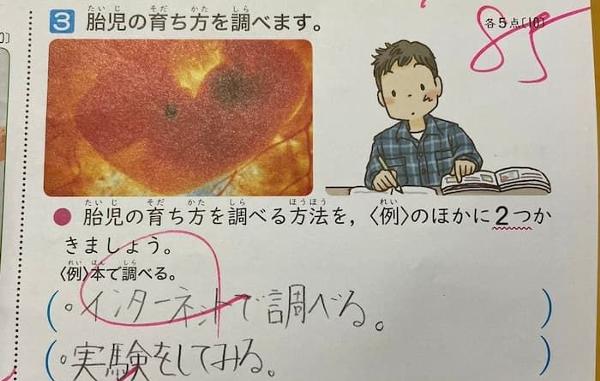 3 胎児の育ち方を調べます。
各5点[10]
85
●胎児の育ち方を調べる方法を,〈例〉のほかに2つか
きましょう。
〈例〉本で調べる。
(・インターネットで調べる。)
(・実験をしてみる。)